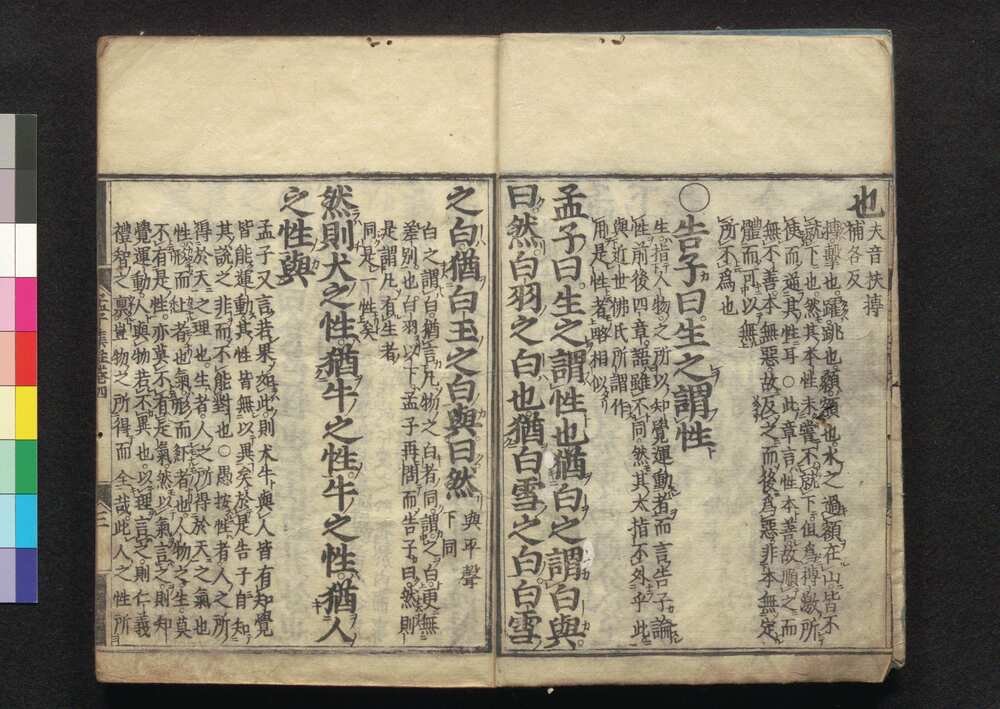 也
夫音扶搏
補各反
搏擊也躍跳也顙額也水之過額在山皆不
就下也然其本性未嘗不就下但為搏激所
使而逆其性耳○此章言性本善故順之而
無不善本無惡故反之而後為惡非本無定
體而可以無
所不為也
○告子曰生之謂性
生指人物之所以知覺運動者而言告子論
性前後四章語雖不同然其大指不外乎此
與近世佛氏所謂作
用是性者略相似
孟子曰生之謂性也猶白之謂白與
曰然白羽之白也猶白雪之白白雪
之白猶白玉之白與曰然
與平聲
下同
白之謂白猶言凡物之白者同謂之白更無
差別也白羽以下孟子再問而告子曰然則
是謂凡有生者
同是一性矣
然則犬之性猶牛之性牛之性猶人
之性與
孟子又言若果如此則犬牛與人皆有知覺
皆能運動其性皆無以異矣於是告子自知
其說之非而不能對也○愚按性者人之所
得於天之理也生者人之所得於天之氣也
性形而上者也氣形而下者也人物之生莫
不有是性亦莫不有是氣然以氣言之則知
覺運動人與物若不異也以理言之則仁義
禮智之稟豈物之所得而全哉此人之性所
孟子集註卷四